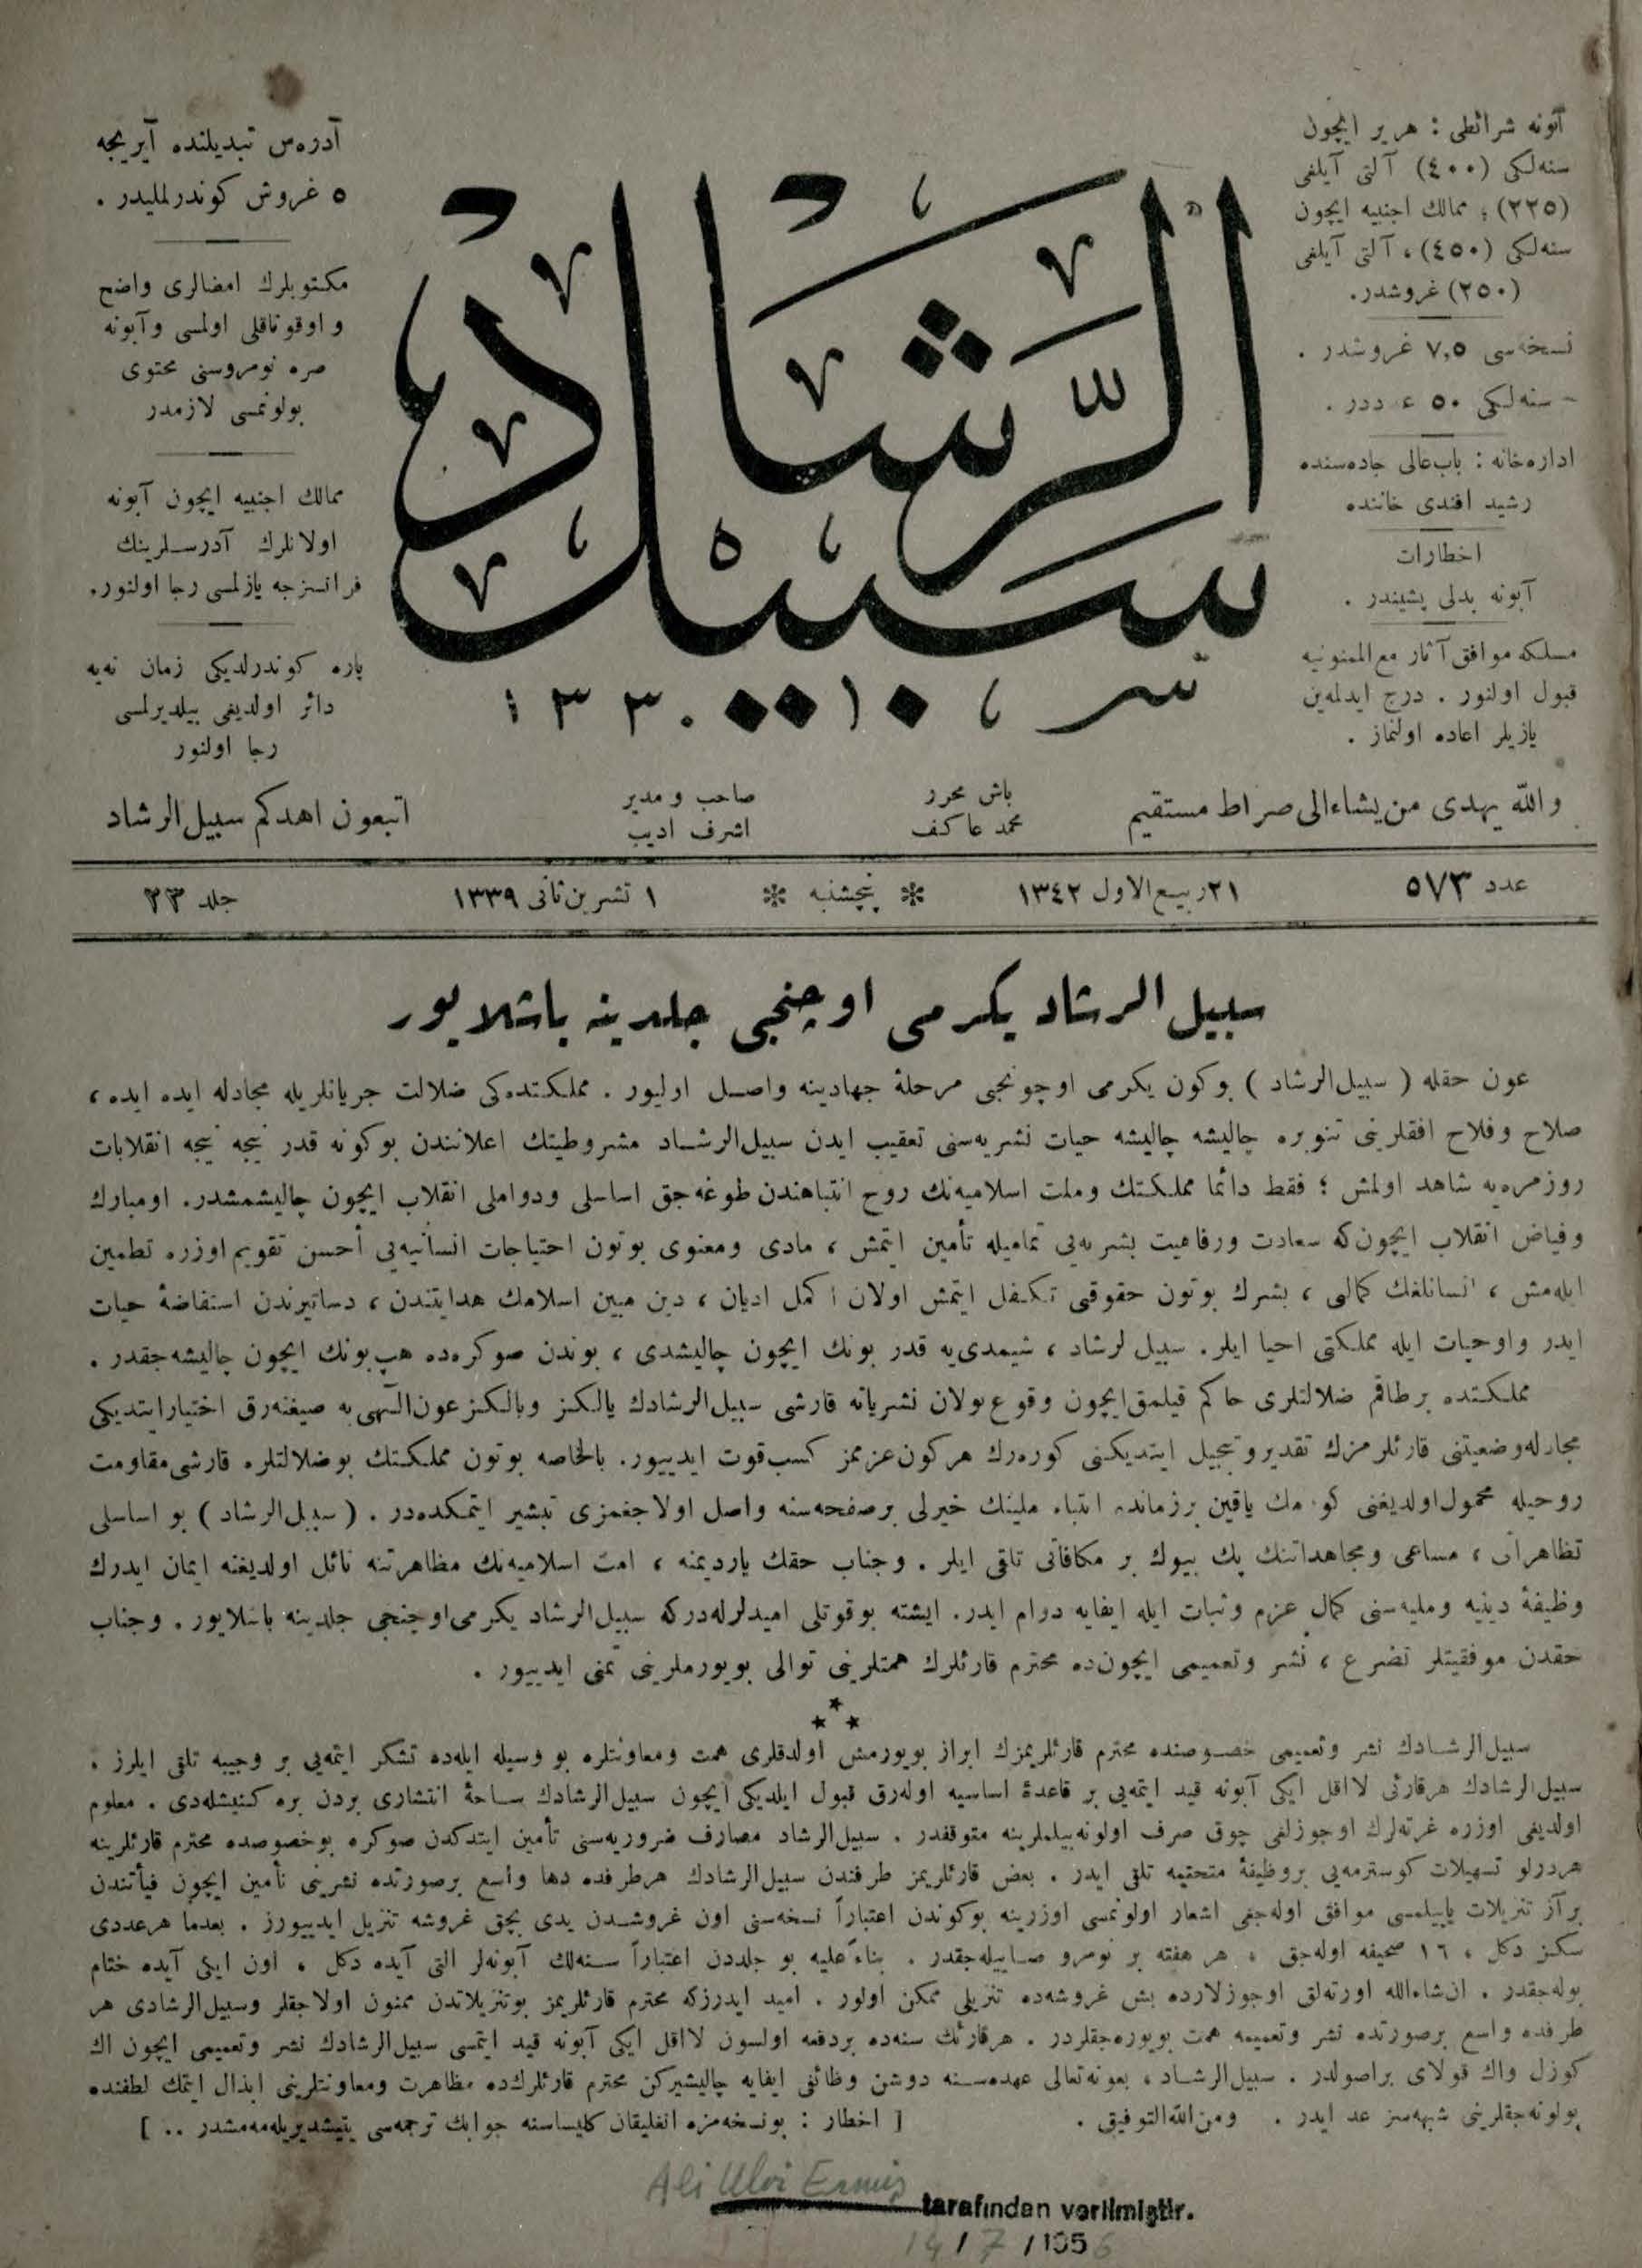 آبونه شرائطی : هر یر ایچون
سنه‌لكی (٤٠٠) آلتی آیلغی
(٢٢٥) ؛ ممالك اجنبیه ایچون
سنه‌لكی (٤٥٠) ، آلتی آیلغی
(٢٥٠) غروشدر.
نسخه‌سی ٧,٥ غروشدر .
- سنه‌لكی ٥٠ عدددر .
اداره‌خانه : باب‌عالی جاده‌سنده
رشید افندی خاننده
اخطارات
آبونه بدلی پشیندر .
مسلكه موافق آثار مع‌الممنونیه
قبول اولنور . درج ایدلمه‌ین
یازیلر اعاده اولنماز .
سبیل الرشاد
آدره‌س تبدیلنده آیریجه
٥ غروش كوندرلملیدر .
مكتوبلرك امضالری واضح
و اوقوناقلی اولمسی وآبونه
صره نومروسنی محتوی
بولونمسی لازمدر
ممالك اجنبیه ایچون آبونه
اولانلرك آدرسلرینك
فرانسزجه یازلمسی رجا اولنور.
پاره كوندرلدیكی زمان نه‌یه
دائر اولدیغی بیلدیرلمسی
رجا اولنور
والله یهدی من یشاء الی صراط مستقیم
باش محرر
محمد عاكف
صاحب و مدیر
اشرف ادیب
اتبعون اهدكم سبیل الرشاد
عدد ٥٧٣ ٢١ ربیع‌الاول ١٣٤٢ ❊ پنچشنبه ❊ ١ تشرین ثانی ١٣٣٩ جلد ٢٣
سبیل الرشاد یكرمی اوچنجی جلدینه باشلایور
عون حقله ( سبیل‌الرشاد ) بوكون یكرمی اوچونجی مرحلهٔ جهادینه واصل اولیور . مملكتده‌كی ضلالت جریانلریله مجادله ایده ایده ،
صلاح وفلاح افقلرینی تنویره چالیشه چالیشه حیات نشریه‌سنی تعقیب ایدن سبیل‌الرشاد مشروطیتك اعلانندن بوكونه قدر نیجه نیجه انقلابات
روزمره‌یه شاهد اولمش ؛ فقط دائما مملكتك وملت اسلامیه‌نك روح انتباهندن طوغه‌جق اساسلی ودواملی انقلاب ایچون چالیشمشدر. اومبارك
وفیاض انقلاب ایچون‌كه سعادت ورفاهیت بشریه‌یی تمامیله تأمین ایتمش ، مادی ومعنوی بوتون احتیاجات انسانیه‌یی أحسن تقویم اوزره تطمین
ایله‌مش ، انسانلغك كمالی ، بشرك بوتون حقوقنی تكفل ایتمش اولان اكمل ادیان ، دین مبین اسلامك هدایتندن ، دساتیرندن استفاضهٔ حیات
ایدر واوحیات ایله مملكتی احیا ایلر. سبیل لرشاد ، شیمدی‌یه قدر بونك ایچون چالیشدی ، بوندن صوكره‌ده هپ بونك ایچون چالیشه‌جقدر .
مملكتده برطاقم ضلالتلری حاكم قیلمق‌ایچون وقوع بولان نشریاته قارشی سبیل‌الرشادك یالكز ویالكز عون‌الهی‌یه صیغنه‌رق اختیارایتدیكی
مجادله‌وضعیتنی قارئلرمزك تقدیر و تبجیل ایتدیكنی كوره‌رك هركون عزممز كسب قوت ایدییور. بالخاصه بوتون مملكتك بوضلالتلره قارشی‌مقاومت
روحیله محمول‌اولدیغنی كورمك یاقین برزمانده انتباه ملینك خیرلی برصفحه‌سنه واصل اولاجغمزی تبشیر ایتمكده‌در . ( سبیل‌الرشاد ) بو اساسلی
تظاهراتی ، مساعی ومجاهداتنك پك بیوك بر مكافاتی تلقی ایلر . وجناب حقك یاردیمنه ، امت اسلامیه‌نك مظاهرتنه نائل اولدیغنه ایمان ایدرك
وظیفهٔ دینیه وملیه‌سنی كمال عزم وثبات ایله ایفایه دوام ایدر. ایشته بوقوتلی امیدلرله‌دركه سبیل‌الرشاد یكرمی‌اوچنجی جلدینه باشلایور . وجناب
حقدن موفقیتلر تضرع ، نشر وتعمیمی ایچون‌ده محترم قارئلرك همتلرینی توالی بویورملرینی تمنی ایدییور .
٭ ٭ ٭
سبیل‌الرشادك نشر وتعمیمی خصوصنده محترم قارئلریمزك ابراز بویورمش اولدقلری همت ومعاونتلره بو وسیله ایله‌ده تشكر ایتمه‌یی بر وجیبه تلقی ایلرز .
سبیل‌الرشادك هرقارئی لااقل ایكی آبونه قید ایتمه‌یی بر قاعدهٔ اساسیه اوله‌رق قبول ایلدیكی ایچون سبیل‌الرشادك ساحهٔ انتشاری بردن بره كنیشله‌دی . معلوم
اولدیغی اوزره غزته‌لرك اوجوزلغی چوق صرف اولونه‌بیلملرینه متوقفدر . سبیل‌الرشاد مصارف ضروریه‌سنی تأمین ایتدكدن صوكره بوخصوصده محترم قارئلرینه
هردرلو تسهیلات كوسترمه‌یی بروظیفهٔ متحتمه تلقی ایدر . بعض قارئلریمز طرفندن سبیل‌الرشادك هرطرفده دها واسع برصورتده نشرینی تأمین ایچون فیأتندن
برآز تنزیلات یاپیلمسی موافق اوله‌جغی اشعار اولونمسی اوزرینه بوكوندن اعتباراً نسخه‌سنی اون غروشدن یدی بچق غروشه تنزیل ایدییورز . بعدما هرعددی
سكز دكل ، ١٦ صحیفه اوله‌جق ، هر هفته بر نومرو صاییله‌جقدر . بناءً علیه بو جلددن اعتباراً سنه‌لك آبونه‌لر التی آیده دكل ، اون ایكی آیده ختام
بوله‌جقدر . ان‌شاءالله اورته‌لق اوجوزلارده بش غروشه‌ده تنزیلی ممكن اولور . امید ایدرزكه محترم قارئلریمز بوتنزیلاتدن ممنون اولاجقلر وسبیل‌الرشادی هر
طرفده واسع برصورتده نشر وتعمیمه همت بویوره‌جقلردر . هرقارئك سنه‌ده بردفعه اولسون لااقل ایكی آبونه قید ایتمسی سبیل‌الرشادك نشر وتعمیمی ایچون اك
كوزل واك قولای براصولدر . سبیل‌الرشاد ، بعونه‌تعالی عهده‌سنه دوشن وظائفی ایفایه چالیشیركن محترم قارئلرك‌ده مظاهرت ومعاونتلرینی ابذال ایتمك لطفنده
بولونه‌جقلرینی شبهه‌سز عد ایدر . ومن‌الله‌التوفیق . [ اخطار : بونسخه‌مزه انغلیقان كلیساسنه جوابك ترجمه‌سی یتیشدیریله‌مه‌مشدر .. ]
Ali Ulvi
tarafından verilmiştir.
14 / 7 / 1956